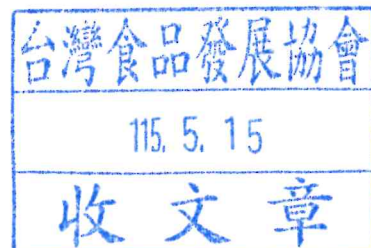 台灣食品發展協會
115. 5. 15
收文章